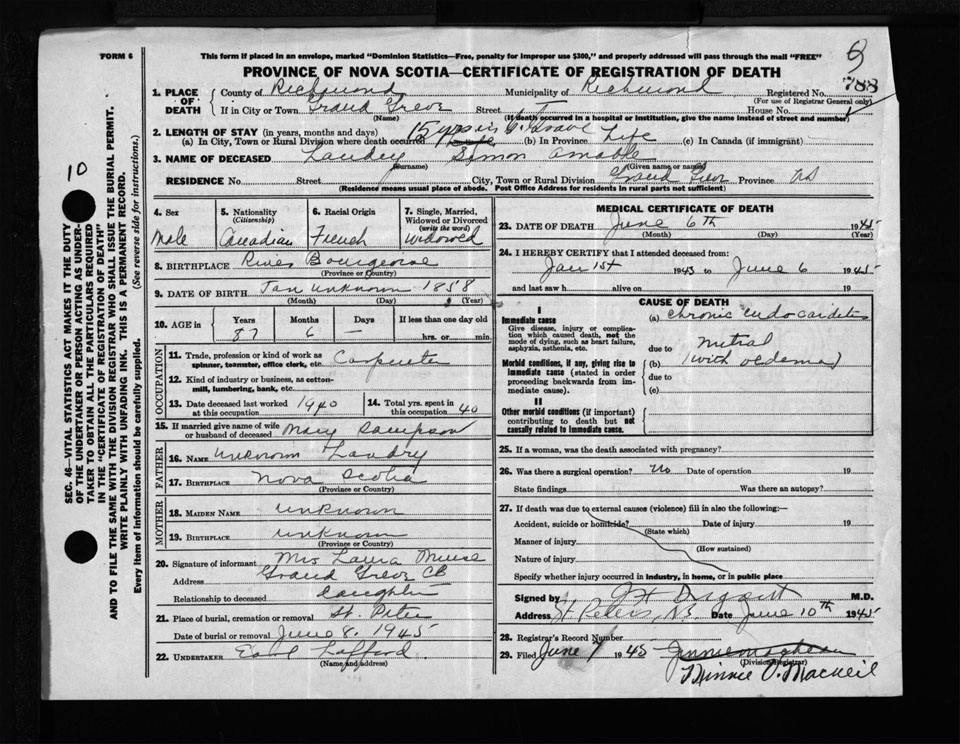 FORM 6
This form if placed in an envelope, marked "Dominion Statistics—Free, penalty for improper use $300," and properly addressed will pass through the mail "FREE"
788
PROVINCE OF NOVA SCOTIA—CERTIFICATE OF REGISTRATION OF DEATH
1. PLACE OF DEATH County of Richmond Municipality of Richmond Registered No.
(For use of Registrar General only)
If in City or Town Grand Greve Street House No.
(Name) (If death occurred in a hospital or institution, give the name instead of street and number)
2. LENGTH OF STAY (in years, months and days)
(a) In City, Town or Rural Division where death occurred 15 yrs in G. Grave (b) In Province Life (c) In Canada (if immigrant)
3. NAME OF DECEASED Landry Simon Amable
(Surname) (Given name or names)
RESIDENCE No. Street City, Town or Rural Division Grand Greve Province NS
(Residence means usual place of abode. Post Office Address for residents in rural parts not sufficient)
4. Sex Male
5. Nationality (Citizenship) Canadian
6. Racial Origin French
7. Single, Married, Widowed or Divorced (write the word) Widowed
8. BIRTHPLACE River Bourgeoise
(Province or Country)
9. DATE OF BIRTH Jan unknown 1858
(Month) (Day) (Year)
10. AGE in Years 87 Months 6 Days — If less than one day old
hrs. or min.
OCCUPATION
11. Trade, profession or kind of work as spinner, teamster, office clerk, etc. Carpenter
12. Kind of industry or business, as cotton-mill, lumbering, bank, etc.
13. Date deceased last worked at this occupation 1940
14. Total yrs. spent in this occupation 40
15. If married give name of wife or husband of deceased Mary Sampson
FATHER
16. NAME unknown Landry
17. BIRTHPLACE Nova Scotia
(Province or Country)
MOTHER
18. MAIDEN NAME unknown
19. BIRTHPLACE unknown
(Province or Country)
20. Signature of informant Mrs Laura Muise
Address Grand Greve CB
Relationship to deceased Daughter
21. Place of burial, cremation or removal St. Peters
Date of burial or removal June 8. 1945
22. UNDERTAKER Lafford
(Name and address)
MEDICAL CERTIFICATE OF DEATH
23. DATE OF DEATH June 6th 1945
(Month) (Day) (Year)
24. I HEREBY CERTIFY that I attended deceased from:
Jan 1st 1943 to June 6 1945
and last saw h alive on 19
CAUSE OF DEATH
I
Immediate cause
Give disease, injury or complication which caused death, not the mode of dying, such as heart failure, asphyxia, asthenia, etc.
(a) chronic endocarditis
due to mitral
Morbid conditions, if any, giving rise to immediate cause (stated in order proceeding backwards from immediate cause).
(b) (with oedema)
due to
(c)
II
Other morbid conditions (if important) contributing to death but not causally related to immediate cause.
25. If a woman, was the death associated with pregnancy?
26. Was there a surgical operation? No Date of operation 19
State findings Was there an autopsy?
27. If death was due to external causes (violence) fill in also the following:—
Accident, suicide or homicide? Date of injury 19
(State which)
Manner of injury
(How sustained)
Nature of injury
Specify whether injury occurred in industry, in home, or in public place
Signed by M.D.
Address St Peters, N.S. Date June 10th 1945
28. Registrar's Record Number
29. Filed June 7 1945
(Division Registrar)
Minnie O. MacNeil
SEC. 46—VITAL STATISTICS ACT MAKES IT THE DUTY
OF THE UNDERTAKER OR PERSON ACTING AS UNDER-
TAKER TO OBTAIN ALL THE PARTICULARS REQUIRED
IN THE "CERTIFICATE OF REGISTRATION OF DEATH"
AND TO FILE THE SAME WITH THE DIVISION REGISTRAR WHO SHALL ISSUE THE BURIAL PERMIT.
WRITE PLAINLY WITH UNFADING INK. THIS IS A PERMANENT RECORD.
Every item of information should be carefully supplied. (See reverse side for instructions.)
10